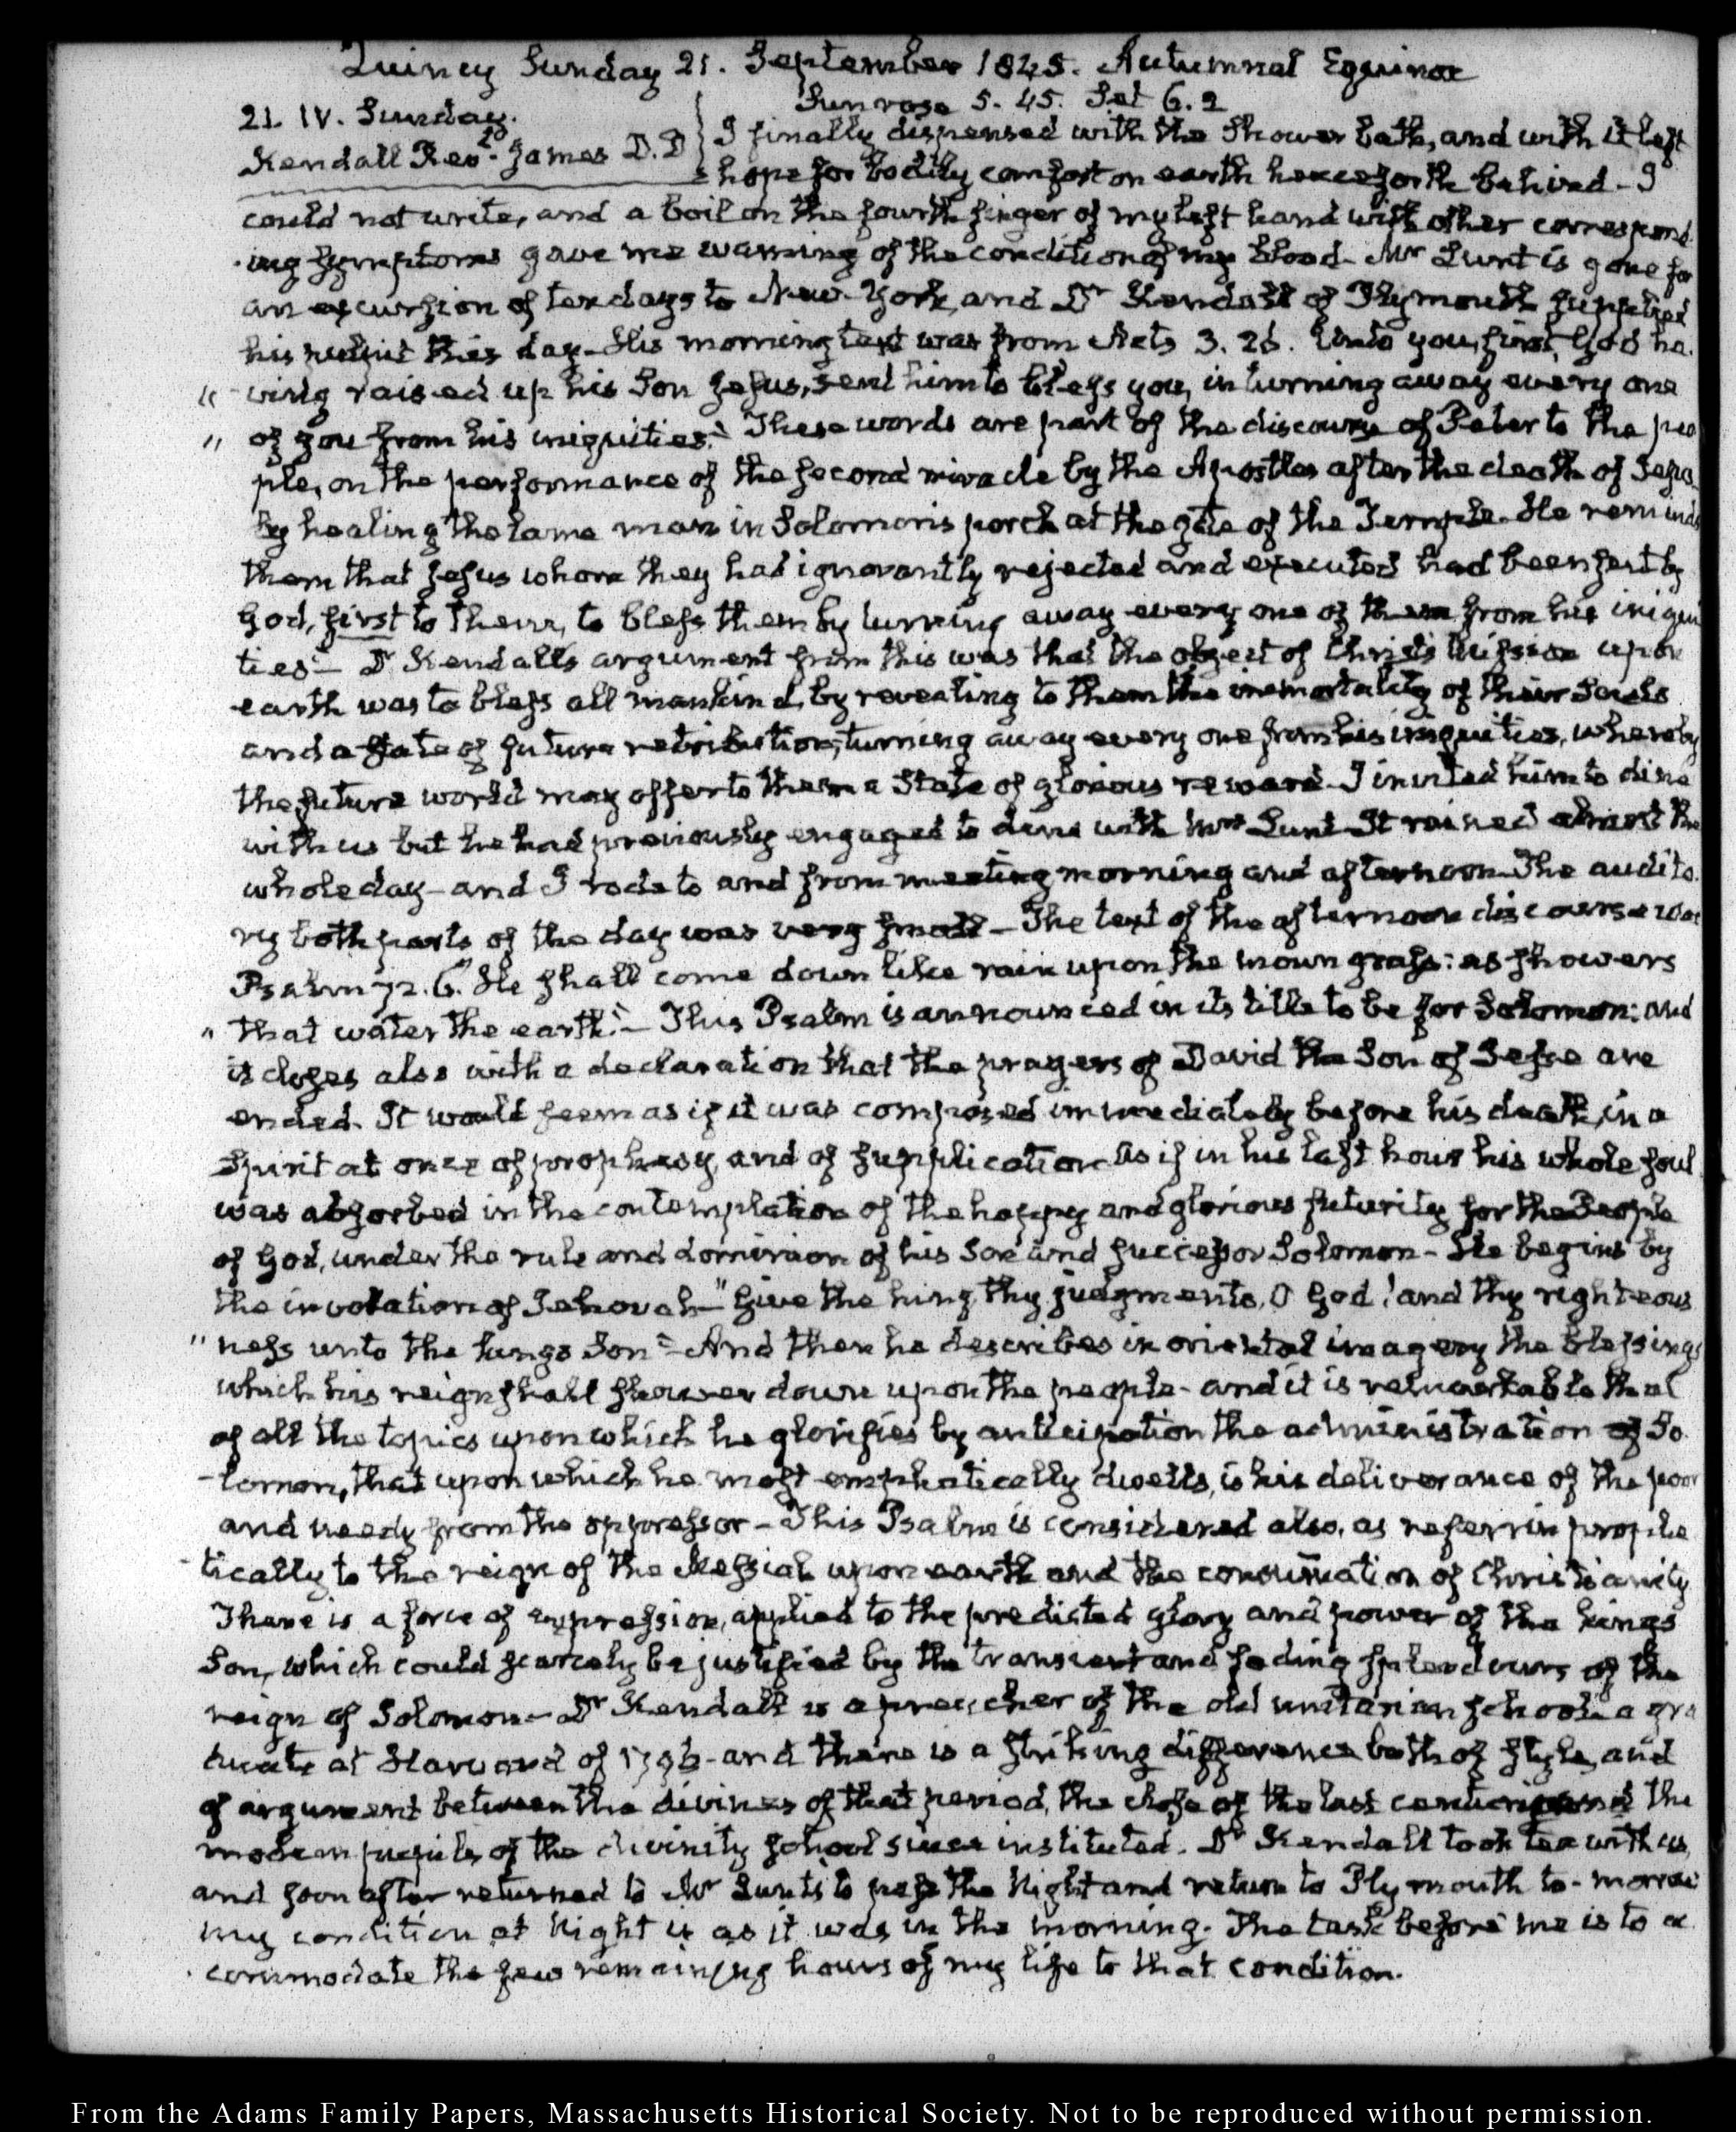 Quincy Sunday 21. September 1845. Autumnal Equinox
Sun rose 5. 45. Set 6. 2
21. IV. Sunday.
Kendall Revd. James D.D
I finally dispensed with the Shower bath, and with it left
hope for bodily comfort on earth henceforth behind - I
could not write, and a boil on the fourth finger of my left hand with other correspond-
ing symptoms gave me warning of the condition of my blood - Mr Lunt is gone for
an excursion of ten days to New-York, and Dr Kendall of Plymouth supplied
his pulpit this day - His morning text was from Acts 3. 26. Unto you, first, God ha-
" ving raised up his Son Jesus, sent him to bless you, in turning away every one
" of you from his iniquities." These words are part of the discourse of Peter to the peo
ple, on the performance of the second miracle by the Apostles after the death of Jesus
by healing the lame man in Solomon's porch at the gate of the Temple - He reminds
them that Jesus whom they had ignorantly rejected and executed had been sent by
God, first to them, to bless them by turning away every one of them from his iniqui
ties - Dr Kendall's argument from this was that the object of Christ's Mission upon
earth was to bless all mankind, by revealing to them the immortality of their Souls
and a State of future retribution, turning away every one from his iniquities, whereby
the future world may offer to them a State of glorious reward - I invited him to dine
with us but he had previously engaged to dine with Mrs Lunt - It rained almost the
whole day - and I rode to and from meeting morning and afternoon - The audito-
ry both parts of the day was very small - The text of the afternoon discourse was
Psalm 72. 6. "He shall come down like rain upon the mown grass: as showers
" that water the earth." - This Psalm is announced in its title to be for Solomon: and
it closes also with a declaration that the prayers of David the Son of Jesse are
ended. It would seem as if it was composed immediately before his death, in a
Spirit at once of prophesy, and of supplication - As if in his last hour his whole soul
was absorbed in the contemplation of the happy and glorious futurity for the People
of God, under the rule and dominion of his Son and successor Solomon - He begins by
the invocation of Jehovah - "Give the king thy judgments, O God! and thy righteous
" ness unto the kings Son" - And then he describes in oriental imagery the blessings
which his reign shall shower down upon the people - and it is remarkable that
of all the topics upon which he glorifies by anticipation the administration of So-
-lomon, that upon which he most emphatically dwells, is his deliverance of the poor
and needy from the oppressor - This Psalm is considered also, as referring prophe
-tically to the reign of the Messiah upon earth and the consumation of Christianity
There is a force of expression, applied to the predicted glory and power of the kings
Son, which could scarcely be justified by the transient and fading splendours of the
reign of Solomon - Dr Kendall is a preacher of the old unitarian school - a gra
duate at Harvard of 1796 - and there is a striking difference both of style, and
of argument between the divines of that period, the close of the last century and the
modern pupils of the divinity school since instituted. Dr Kendall took tea with us,
and soon after returned to Mr Lunt's to pass the Night and return to Plymouth to-morrow
My condition at Night is as it was in the morning. The task before me is to ac
commodate the few remaining hours of my life to that condition.
From the Adams Family Papers, Massachusetts Historical Society. Not to be reproduced without permission.